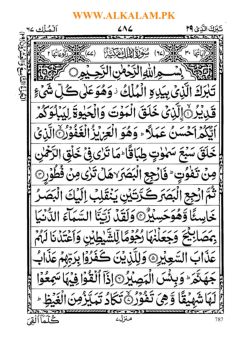 WWW.ALKALAM.PK
الملك ٦٧
٧٨٧
تبرك الذى ٢٩
بِسْمِ اللّٰهِ الرَّحْمٰنِ الرَّحِيْمِ
تَبٰرَكَ الَّذِىْ بِيَدِهِ الْمُلْكُ وَهُوَ عَلٰى كُلِّ شَىْءٍ
قَدِيْرُ ۙ الَّذِىْ خَلَقَ الْمَوْتَ وَالْحَيٰوةَ لِيَبْلُوَكُمْ
اَيُّكُمْ اَحْسَنُ عَمَلًا ؕ وَهُوَ الْعَزِيْزُ الْغَفُوْرُ ۙ الَّذِىْ
خَلَقَ سَبْعَ سَمٰوٰتٍ طِبَاقًا ؕ مَا تَرٰى فِىْ خَلْقِ الرَّحْمٰنِ
مِنْ تَفٰوُتٍ ؕ فَارْجِعِ الْبَصَرَ ۙ هَلْ تَرٰى مِنْ فُطُوْرٍ
ثُمَّ ارْجِعِ الْبَصَرَ كَرَّتَيْنِ يَنْقَلِبْ اِلَيْكَ الْبَصَرُ
خَاسِئًا وَّهُوَ حَسِيْرٌ وَلَقَدْ زَيَّنَّا السَّمَآءَ الدُّنْيَا
بِمَصَابِيْحَ وَجَعَلْنٰهَا رُجُوْمًا لِّلشَّيٰطِيْنِ وَاَعْتَدْنَا لَهُمْ
عَذَابَ السَّعِيْرِ وَلِلَّذِيْنَ كَفَرُوْا بِرَبِّهِمْ عَذَابُ
جَهَنَّمَ ؕ وَبِئْسَ الْمَصِيْرُ اِذَاۤ اُلْقُوْا فِيْهَا سَمِعُوْا
لَهَا شَهِيْقًا وَّهِىَ تَفُوْرُ ۙ تَكَادُ تَمَيَّزُ مِنَ الْغَيْظِ ؕ
كُلَّمَاۤ اُلْقِىَ